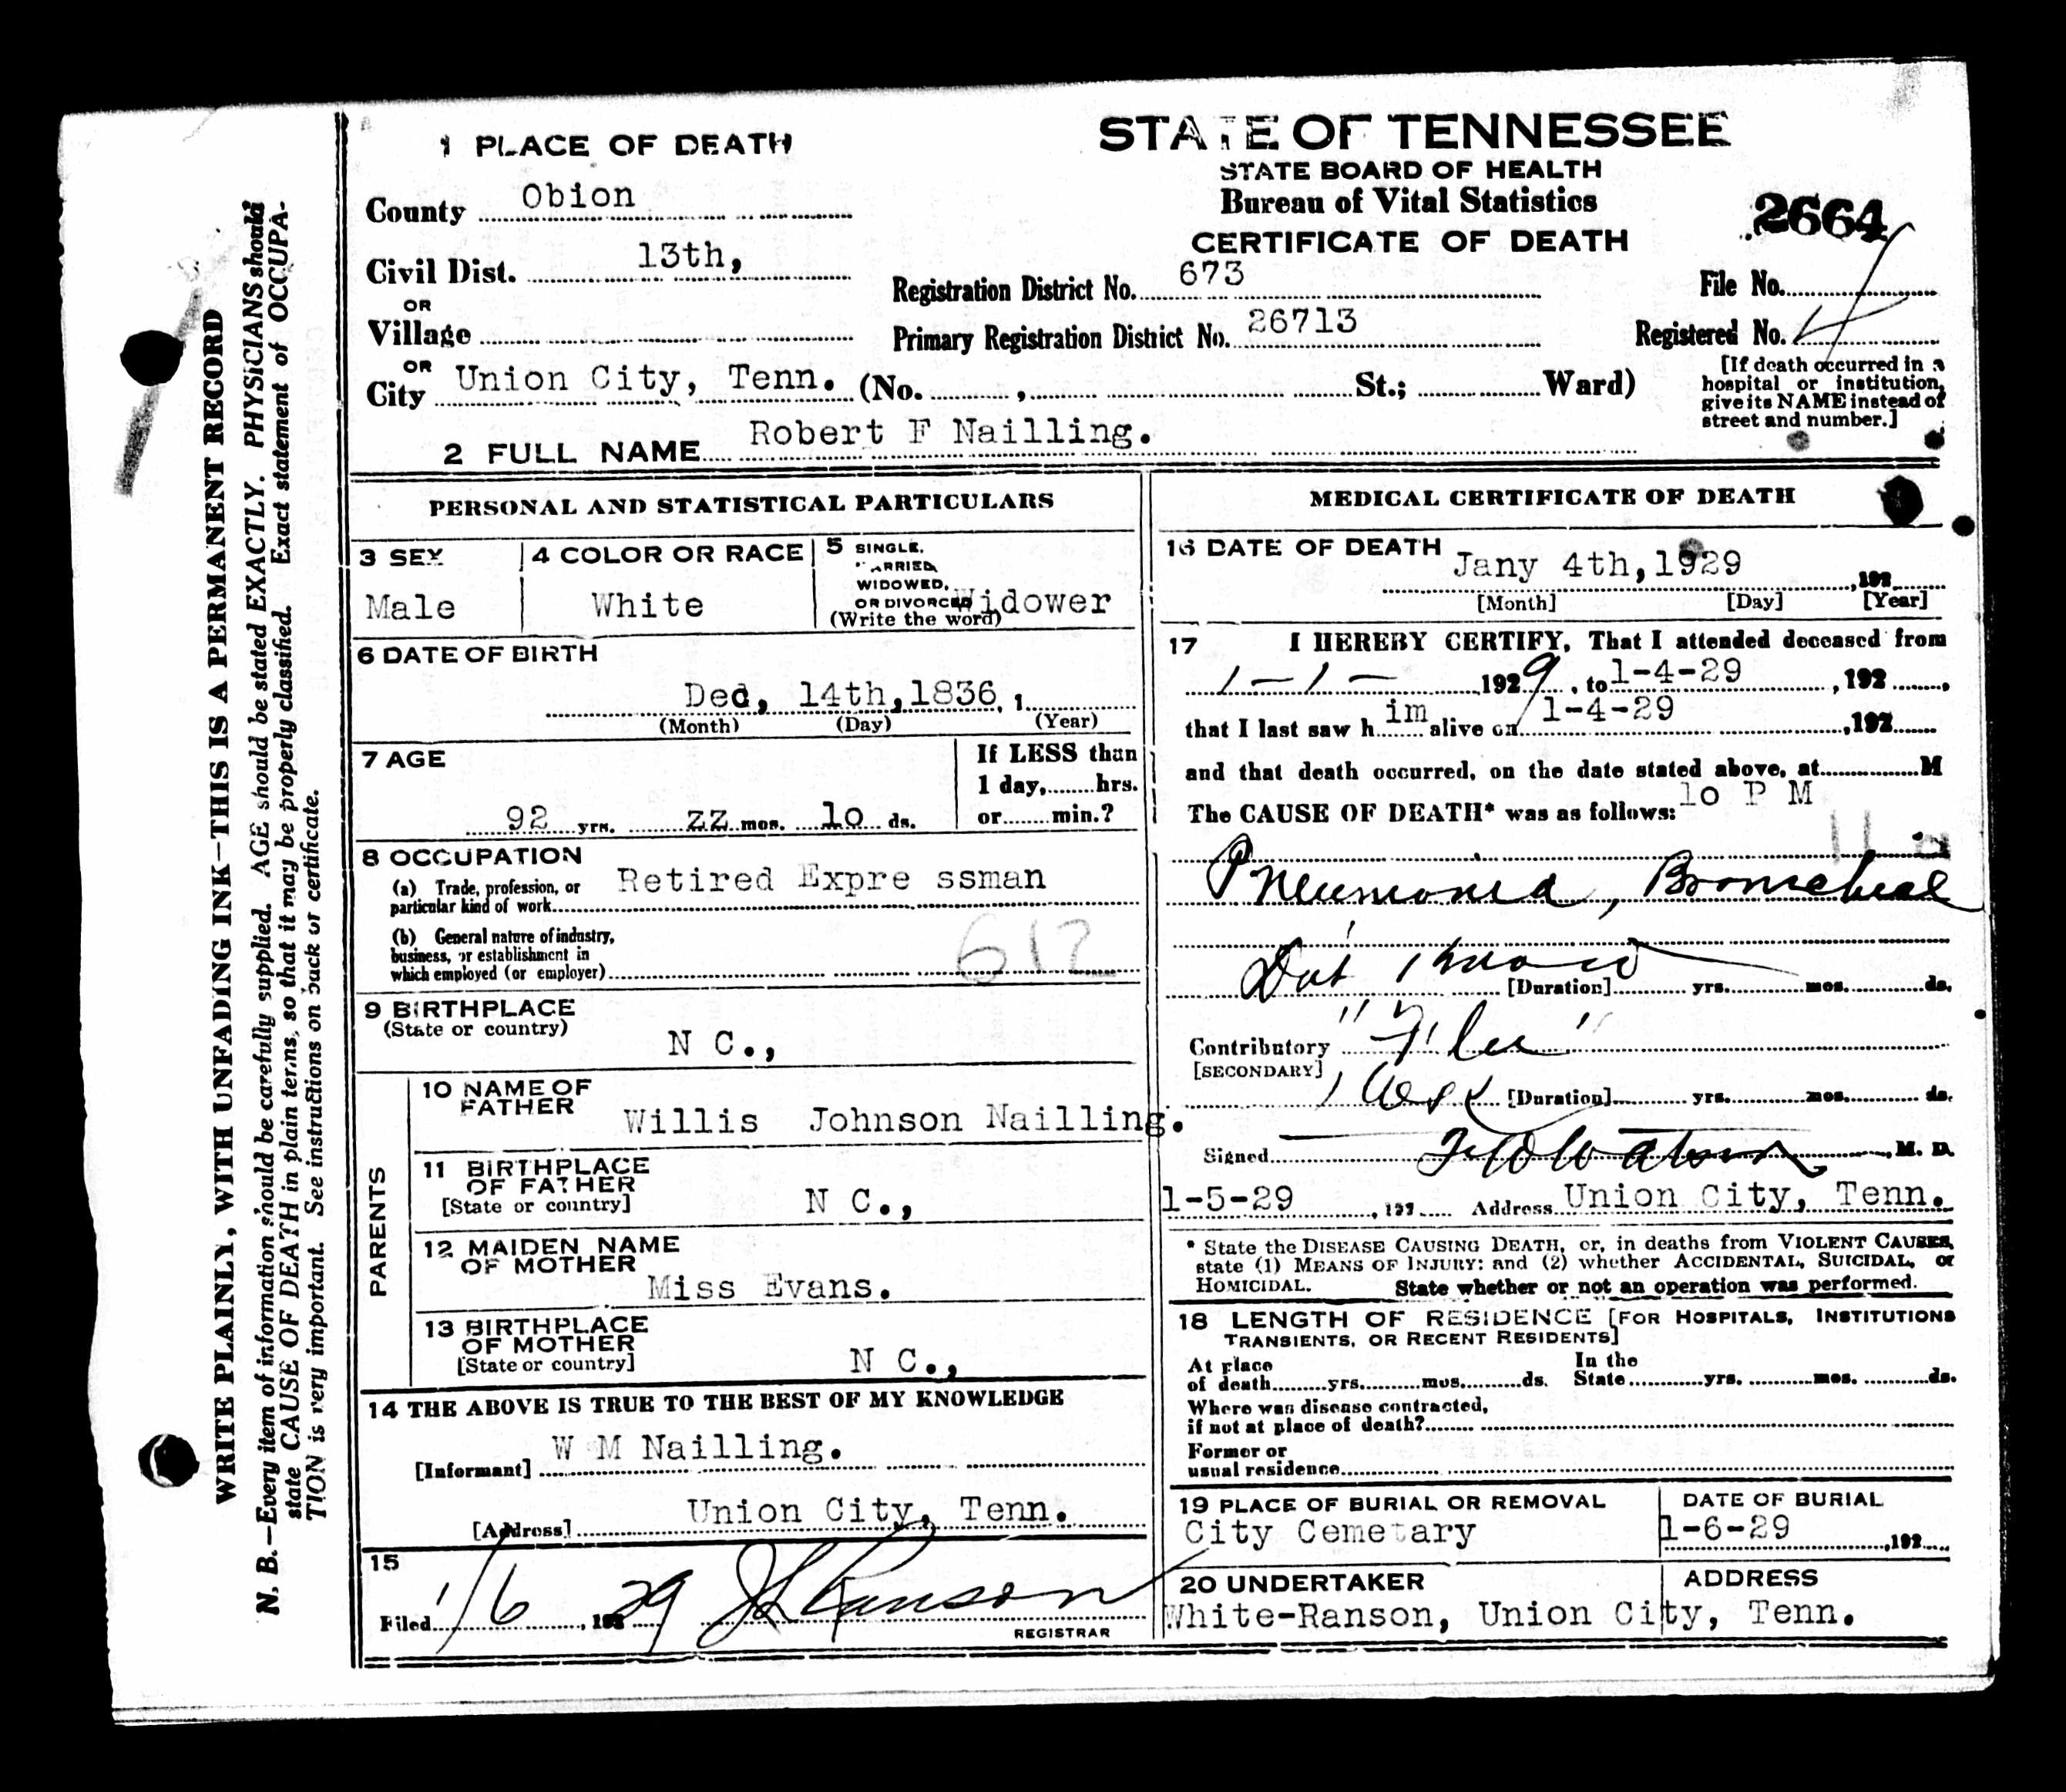 WRITE PLAINLY, WITH UNFADING INK—THIS IS A PERMANENT RECORD
N. B.—Every item of information should be carefully supplied. AGE should be stated EXACTLY. PHYSICIANS should
state CAUSE OF DEATH in plain terms, so that it may be properly classified. Exact statement of OCCUPA-
TION is very important. See instructions on back of certificate.
1 PLACE OF DEATH
County Obion
Civil Dist. 13th,
OR
Village
OR
City Union City, Tenn. (No. , St.; Ward)
STATE OF TENNESSEE
STATE BOARD OF HEALTH
Bureau of Vital Statistics
CERTIFICATE OF DEATH
2664
Registration District No. 673
File No.
Primary Registration District No. 26713
Registered No. 4
[If death occurred in a
hospital or institution,
give its NAME instead of
street and number.]
2 FULL NAME Robert F Nailling.
PERSONAL AND STATISTICAL PARTICULARS
3 SEX
Male
4 COLOR OR RACE
White
5 SINGLE,
MARRIED,
WIDOWED,
OR DIVORCED Widower
(Write the word)
6 DATE OF BIRTH
Dec, 14th, 1836, 1
(Month) (Day) (Year)
7 AGE
92 yrs. ZZ mos. 10 ds.
If LESS than
1 day, hrs.
or min.?
8 OCCUPATION
(a) Trade, profession, or
particular kind of work Retired Expre ssman
(b) General nature of industry,
business, or establishment in
which employed (or employer)
612
9 BIRTHPLACE
(State or country)
N C.,
PARENTS
10 NAME OF
FATHER
Willis Johnson Nailling.
11 BIRTHPLACE
OF FATHER
[State or country]
N C.,
12 MAIDEN NAME
OF MOTHER
Miss Evans.
13 BIRTHPLACE
OF MOTHER
[State or country]
N C.,
14 THE ABOVE IS TRUE TO THE BEST OF MY KNOWLEDGE
[Informant] W M Nailling.
[Address] Union City, Tenn.
15
Filed 1/6, 1929 Ranson
REGISTRAR
MEDICAL CERTIFICATE OF DEATH
16 DATE OF DEATH
Jany 4th, 1929, 192
[Month] [Day] [Year]
17 I HEREBY CERTIFY, That I attended deceased from
1-1- 1929, to 1-4-29, 192,
that I last saw him alive on 1-4-29, 192
and that death occurred, on the date stated above, at M
The CAUSE OF DEATH* was as follows: 10 P M
11
Pneumonia, Bronchial
[Duration] yrs. mos. ds.
Contributory "Flu"
[SECONDARY]
1 Week [Duration] yrs. mos. ds.
Signed Watson, M. D.
1-5-29, 192 Address Union City, Tenn.
* State the DISEASE CAUSING DEATH, or, in deaths from VIOLENT CAUSES,
state (1) MEANS OF INJURY: and (2) whether ACCIDENTAL, SUICIDAL, or
HOMICIDAL. State whether or not an operation was performed.
18 LENGTH OF RESIDENCE [FOR HOSPITALS, INSTITUTIONS
TRANSIENTS, OR RECENT RESIDENTS]
At place
of death yrs. mos. ds.
In the
State yrs. mos. ds.
Where was disease contracted,
if not at place of death?
Former or
usual residence
19 PLACE OF BURIAL OR REMOVAL
City Cemetary
DATE OF BURIAL
1-6-29, 192
20 UNDERTAKER
ADDRESS
White-Ranson, Union City, Tenn.